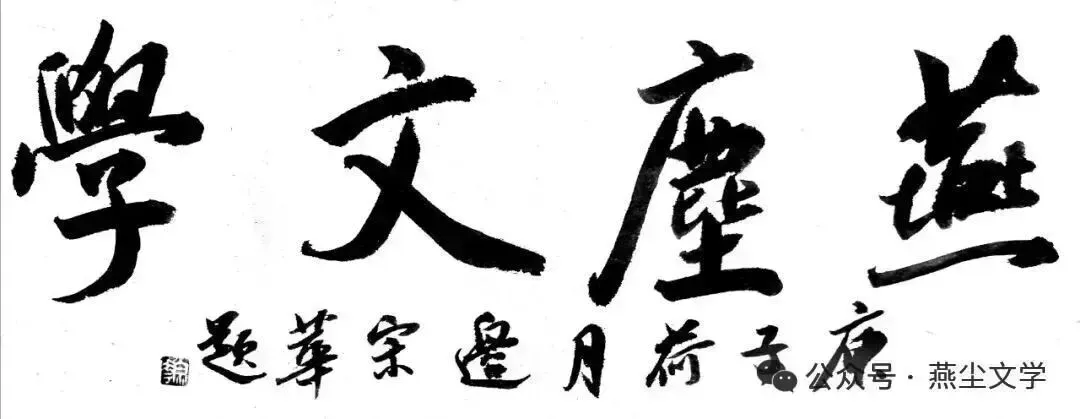 燕塵文學
庚子荷月邊宋華題
公众号 · 燕尘文学